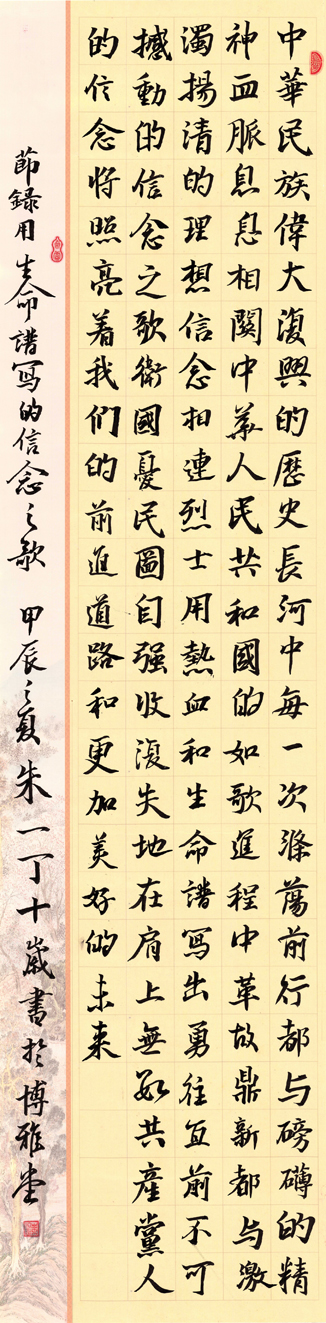 中華民族偉大復興的歷史長河中每一次滌蕩前行都与磅礴的精
神血脈息息相關中華人民共和國的如歌進程中革故鼎新都与激
濁揚清的理想信念相連烈士用熱血和生命譜寫出勇往直前不可
撼動的信念之歌衛國憂民圖自強收復失地在肩上無數共產黨人
的信念將照亮着我们的前進道路和更加美好的未来
節録用生命譜寫的信念之歌 甲辰之夏朱一丁十歲書於博雅堂